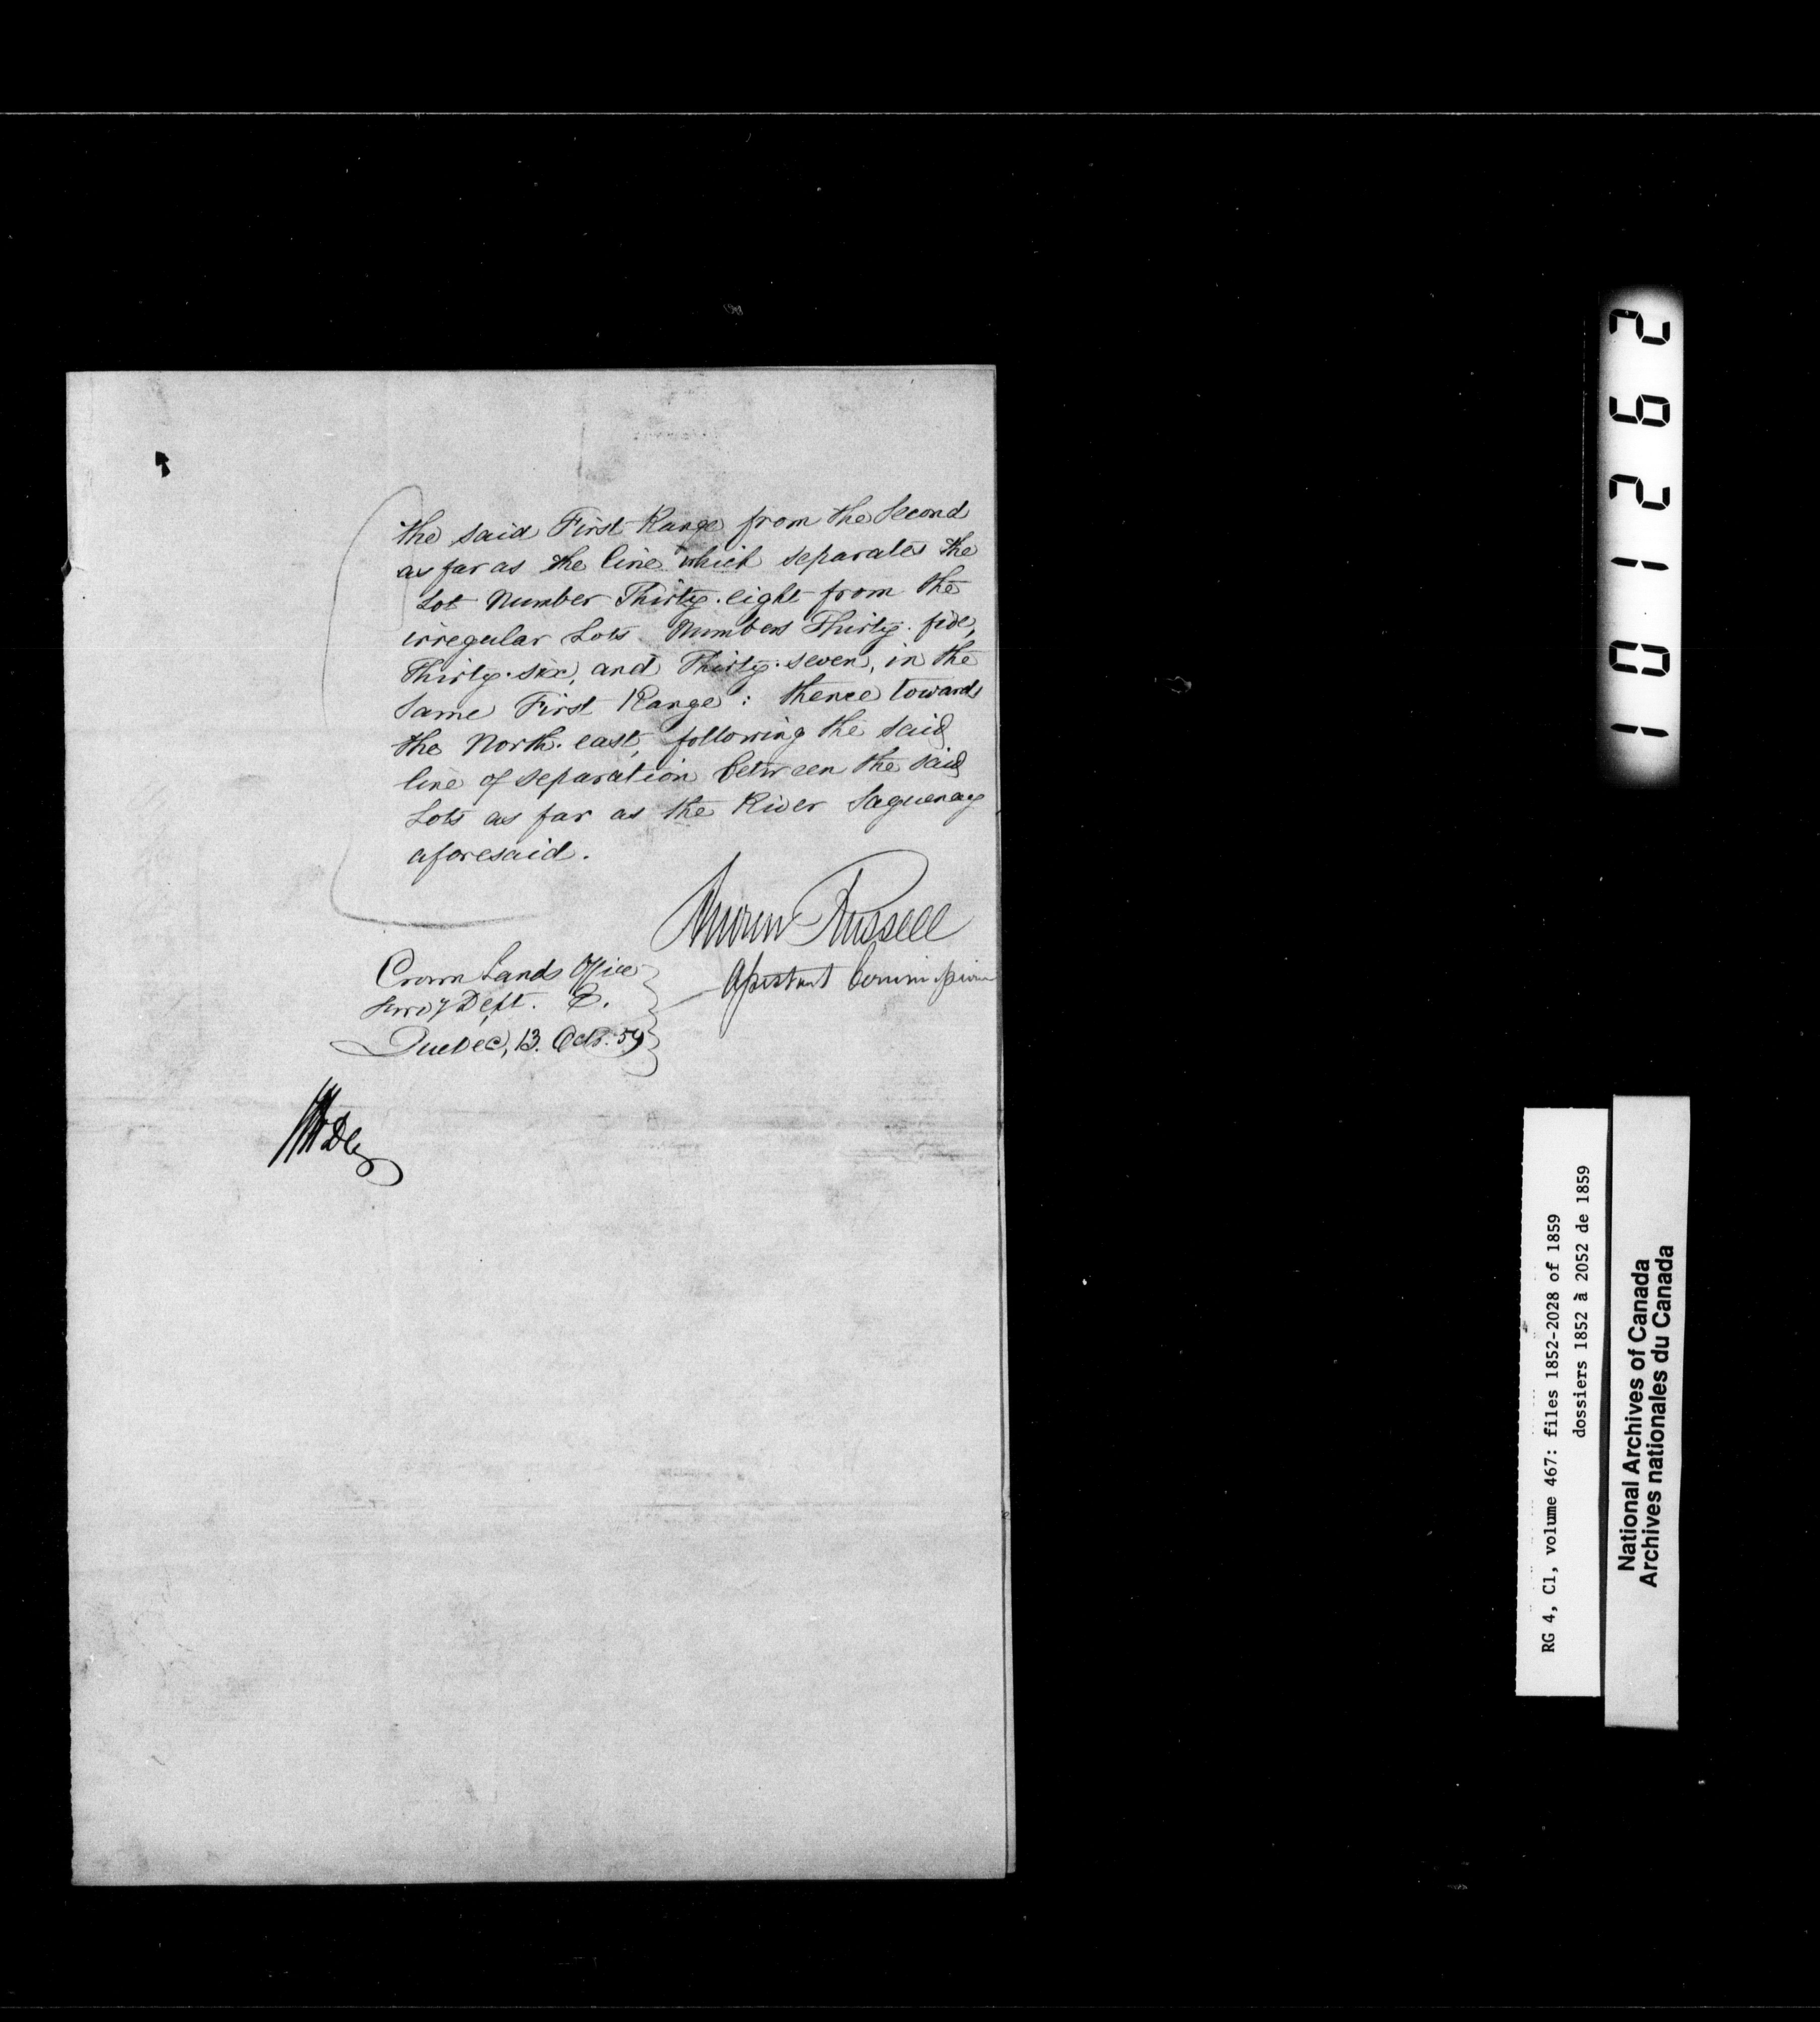 the said First Range from the Second
as far as the line which separates the
Lot Number Thirty-eight from the
irregular Lots Numbers Thirty-five,
Thirty-six, and Thirty-seven, in the
same First Range: thence towards
the North-east, following the said
line of separation between the said
Lots as far as the River Saguenay
aforesaid.
Andrew Russell
Assistant Commissioner
Crown Lands Office
Survey Dept. E.
Quebec, 13. Octr. 59
101262
RG 4, C1, volume 467: files 1852-2028 of 1859
dossiers 1852 à 2052 de 1859
National Archives of Canada
Archives nationales du Canada